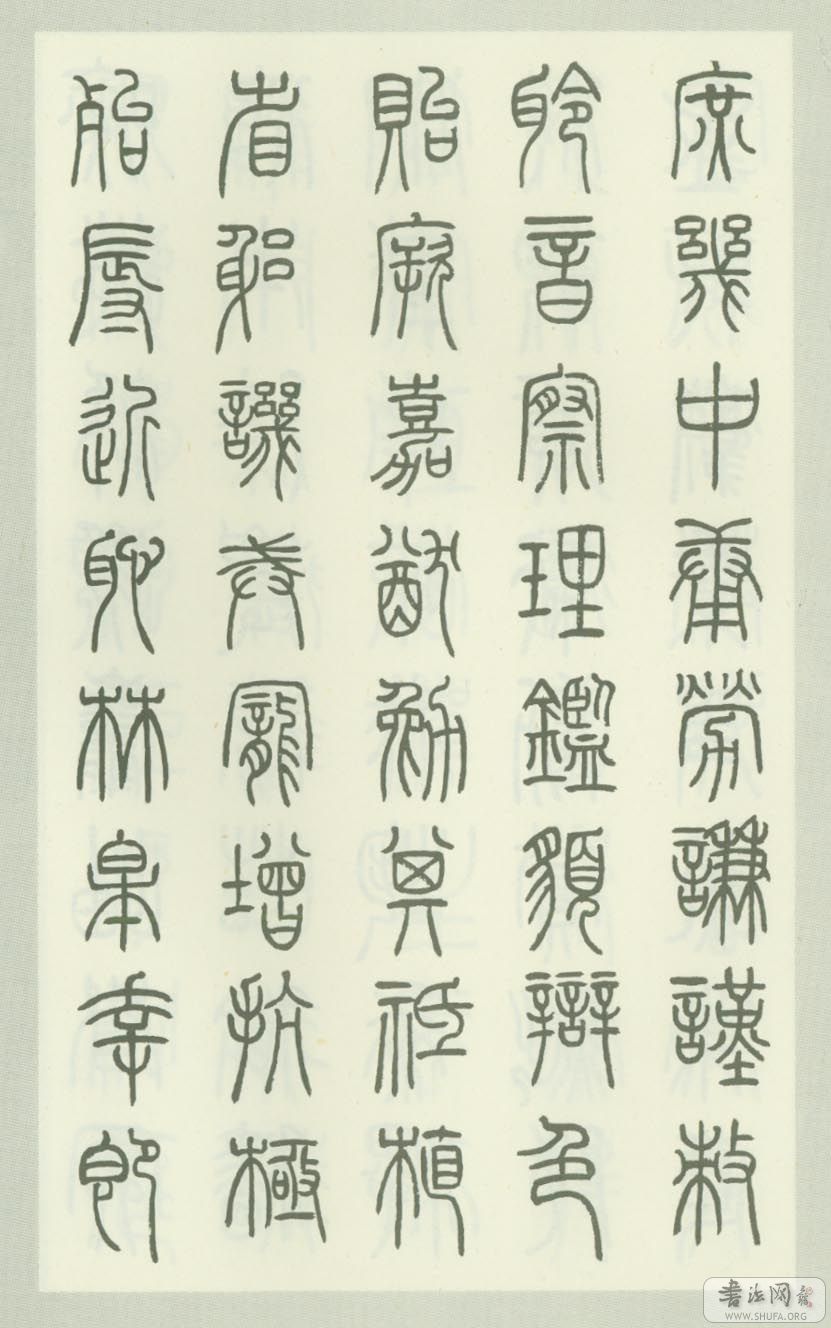 庶幾中庸勞謙謹敕
聆音察理鑑貌辯色
貽厥嘉猷勉其祗植
省躬譏誡寵增抗極
殆辱近恥林皋幸即
书法网
WWW.SHUFA.ORG